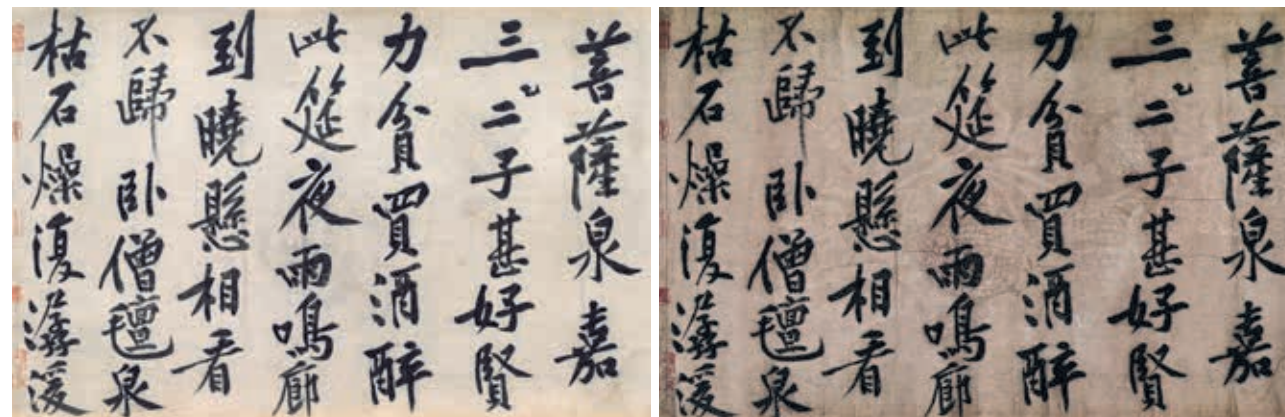 菩薩泉嘉
三二子甚好賢
力貧買酒醉
此筵夜雨鳴廊
到曉懸相看
不歸臥僧氈泉
枯石燥復潺湲
菩薩泉嘉
三二子甚好賢
力貧買酒醉
此筵夜雨鳴廊
到曉懸相看
不歸臥僧氈泉
枯石燥復潺湲